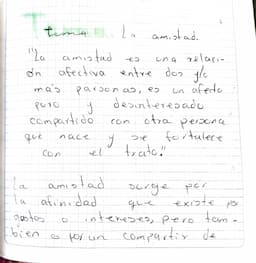 tema: La amistad.
"La amistad es una relaci-
ón afectiva entre dos y/o
más personas, es un afecto
puro y desinteresado
compartido con otra persona
que nace y se fortalece
con el trato."
La amistad surge por
la afinidad que existe por
gustos o intereses, pero tam-
bien es por un compartir de